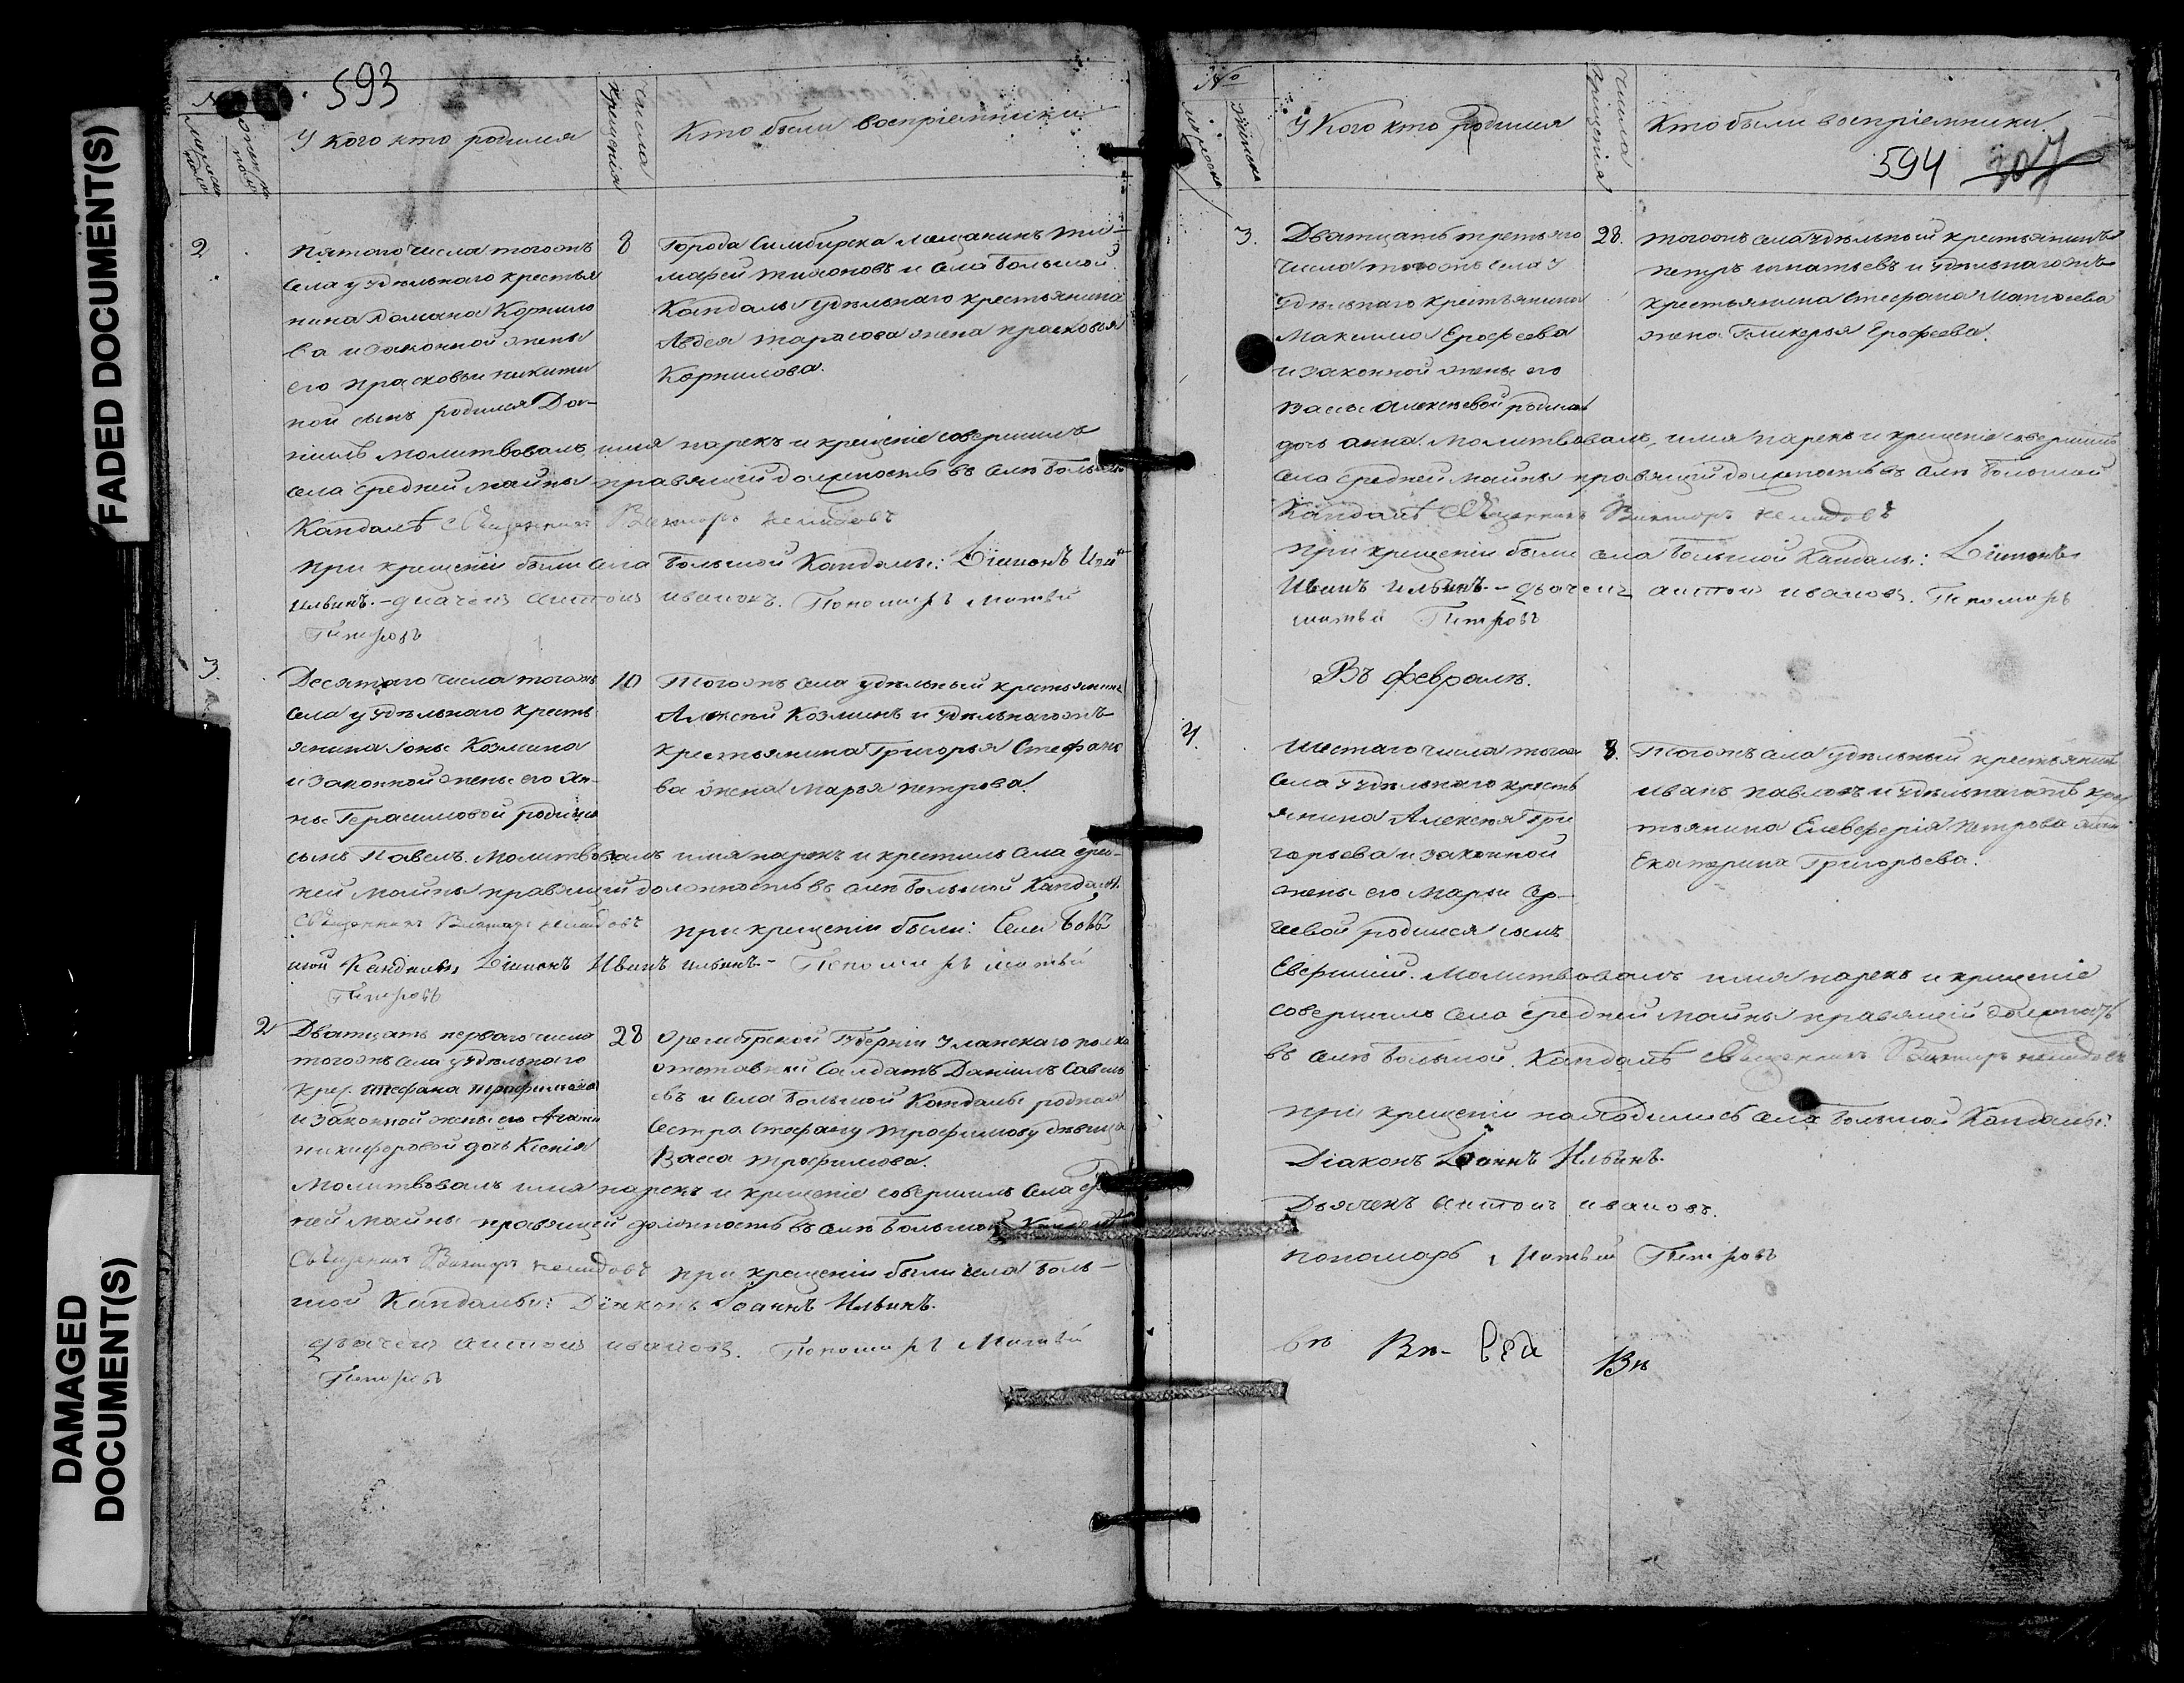 FADED DOCUMENT(S)
DAMAGED
DOCUMENT(S)
593
У кого кто родился
Числа крещенія
Кто были воспріемники
2
Пятого числа тогожъ
села у удѣльнаго крестья
нина Романа Корнило
ва и законной жены
его Прасковьи Никити
ной сынъ родился Да-
ніилъ молитвовалъ, имя нарекъ и крещеніе совершилъ
села Средней Майны правящій должность въ селѣ Большой
Кандалѣ Священникъ Викторъ
при крещеніи были села Большой Кандалы: Діаконъ
Ильинъ. – дьячекъ Антонъ Ивановъ. Пономарь Матвѣй
Петровъ
8
Города Симбирска мещанинъ Ти-
мофей Тихоновъ и села Большой
Кандалы удѣльнаго крестьянина
Авдея Тарасова жена Прасковья
Корнилова.
3.
Десятаго числа тогожъ
села у удѣльнаго кресть
янина Іоны Козмина
и законной жены его Ан-
ны Герасимовой родился
сынъ Павелъ. Молитвовалъ имя нарекъ и крестилъ села Сред-
ней Майны правящій должность въ селѣ Большой Кандалѣ
Священникъ Викторъ при крещеніи были: Села Боль
шой Кандалы, Діаконъ Иванъ Ильинъ. – Пономарь Матвѣй
Петровъ
10
Тогожъ села удѣльный крестьянинъ
Алексѣй Козминъ и удѣльнагожъ
крестьянина Григорья Стефано
ва жена Марья Петрова.
2
Дватцать перваго числа
тогожъ села у удѣльнаго
крес. Стефана Трофимова
и законной жены его Агафьи
Никифоровой дочь Ксенія
Молитвовалъ имя нарекъ и крещеніе совершилъ села Сред
ней Майны правящій должность въ селѣ Большой Кандалѣ
Священникъ Викторъ при крещеніи были села Боль-
шой Кандалы: Діаконъ Іоаннъ Ильинъ.
дьячекъ Антонъ Ивановъ. Пономарь Матвѣй
Петровъ
28
Оренбургской Губерніи Уланскаго полка
отставный Салдатъ Даніилъ Савель
евъ и села Большой Кандалы родная
сестра Стефану Трофимову девица
Васса Трофимова.
№
У Кого кто родился
Числа крещенія
Кто были воспріемники.
594
3.
Дватцать третьяго
числа тогожъ села у
удѣльнаго крестьянина
Максима Ерофеева
и законной жены его
Вассы Алексѣевой родилась
дочь Анна. Молитвовалъ, имя нарекъ и крещеніе совершилъ
села Средней Майны правящій должность въ селѣ Большой
Кандалѣ Священникъ Викторъ
при крещеніи были села Большой Кандалы: Діаконъ
Иванъ Ильинъ. – дьячекъ Антонъ Ивановъ. Пономарь
Матвѣй Петровъ
28.
тогожъ села удѣльный крестьянинъ
Петръ Игнатьевъ и удѣльнагожъ
крестьянина Стефана Матвеева
жена Гликерья Ерофеева.
Въ Февралѣ.
4.
Шестаго числа тогожъ
села у удѣльнаго кресть
янина Алексѣя Гри
горьева и законной
жены его Марьи Сер-
геевой родился сынъ
Евфимій. Молитвовалъ имя нарекъ и крещеніе
совершилъ села Средней Майны правящій должность
въ селѣ Большой Кандалѣ Священникъ Викторъ
при крещеніи находились села Большой Кандалы:
Діаконъ Іоаннъ Ильинъ.
Дьячекъ Антонъ Ивановъ.
пономарь Матвѣй Петровъ
8.
Тогожъ села удѣльный крестьянинъ
Иванъ Павловъ и удѣльнагожъ крес
тьянина Елевферія Петрова жена
Екатерина Григорьева.